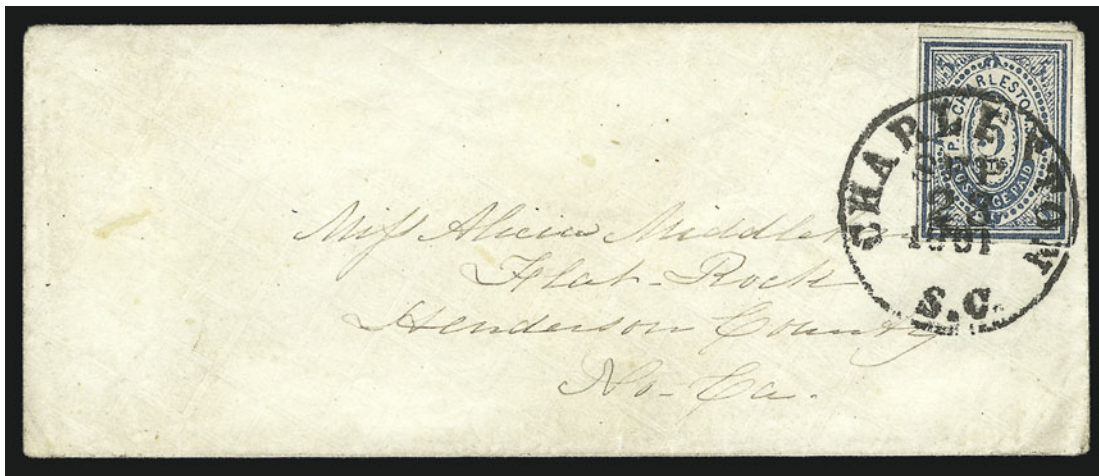 5 5
P.O. CHARLESTON, S.C.
5
CTS
POSTAGE PAID
CHARLESTON
SEP
23
1861
S.C.
Miss Alicia Middleton
Flat-Rock
Henderson County
No-Ca.